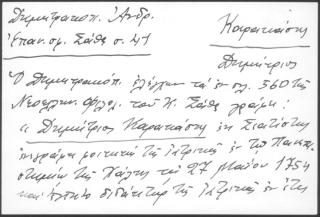 Δημητρακοπ. Ἀνδρ.
Ἐπαν. σφ. Σάθα σ. 41
Καρατιάσης
Δημήτριος
Ὁ Δημητρακόπ. ἐλέγχων τὰ ἐν σελ. 560 τῆς
Νεοελλην. Φιλολ. τοῦ Κ. Σάθα γράφει:
« Δημήτριος Καρατιάσης ἐκ Σιατίστης
τῆς Ἰατρικῆς ἐν τῷ Πανεπι-
στημίῳ τῆς τῇ 27 Μαΐου 1754
καὶ διδάκτωρ τῆς Ἰατρικῆς ἐν ἔτει